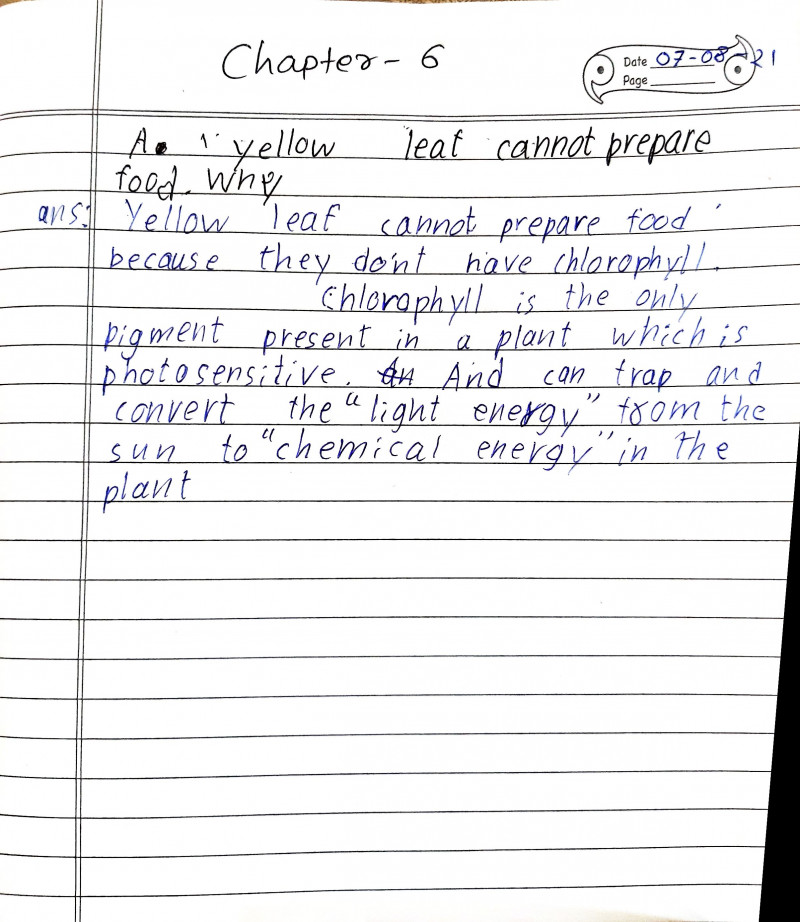 Chapter - 6
Date 07-08-21
Page
A. 1 yellow leaf cannot prepare
food. Why
ans: Yellow leaf cannot prepare food
because they don't have chlorophyll.
Chlorophyll is the only
pigment present in a plant which is
photosensitive. An And can trap and
convert the "light energy" from the
sun to "chemical energy" in the
plant